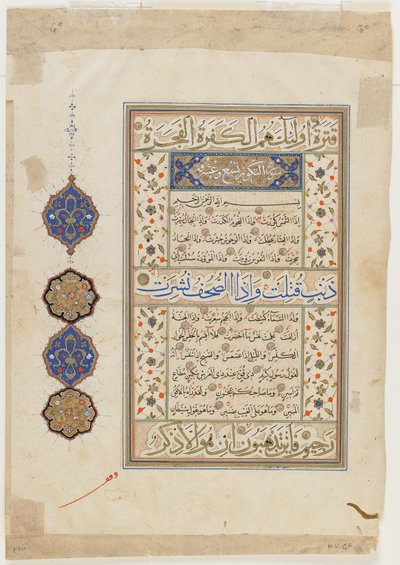 قترة اولئك هم الكفرة الفجرة
سورة التكوير تسع وعشرون
بسم الله الرحمن الرحيم
اذا الشمس كورت واذا النجوم انكدرت واذا الجبال سيرت
واذا العشار عطلت واذا الوحوش حشرت واذا البحار
سجرت واذا النفوس زوجت واذا الموؤدة سئلت باى
ذنب قتلت واذا الصحف نشرت
واذا السماء كشطت واذا الجحيم سعرت واذا الجنة
ازلفت علمت نفس ما احضرت فلا اقسم بالخنس الجوار
الكنس والليل اذا عسعس والصبح اذا تنفس انه
لقول رسول كريم ذى قوة عند ذى العرش مكين مطاع
ثم امين وما صاحبكم بمجنون ولقد رآه بالافق
المبين وما هو على الغيب بضنين وما هو بقول شيطان
رجيم فاين تذهبون ان هو الا ذكر
وقف